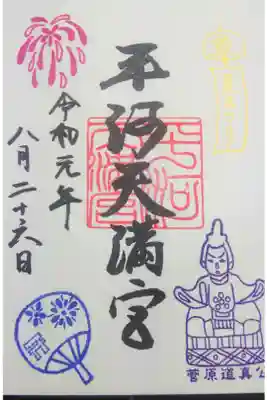 平河天満宮
令和元年
八月二十六日
菅原道真公